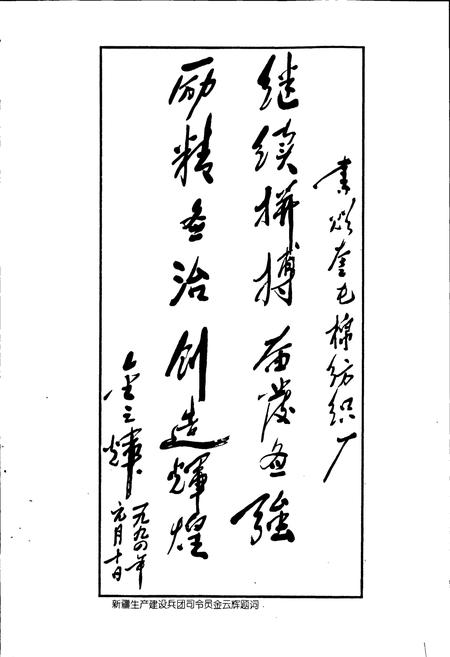 书颂奎屯棉纺织厂
继续拼搏奋发图强
励精图治创造辉煌
金云辉
一九九四年
元月十日
新疆生产建设兵团司令员金云辉题词